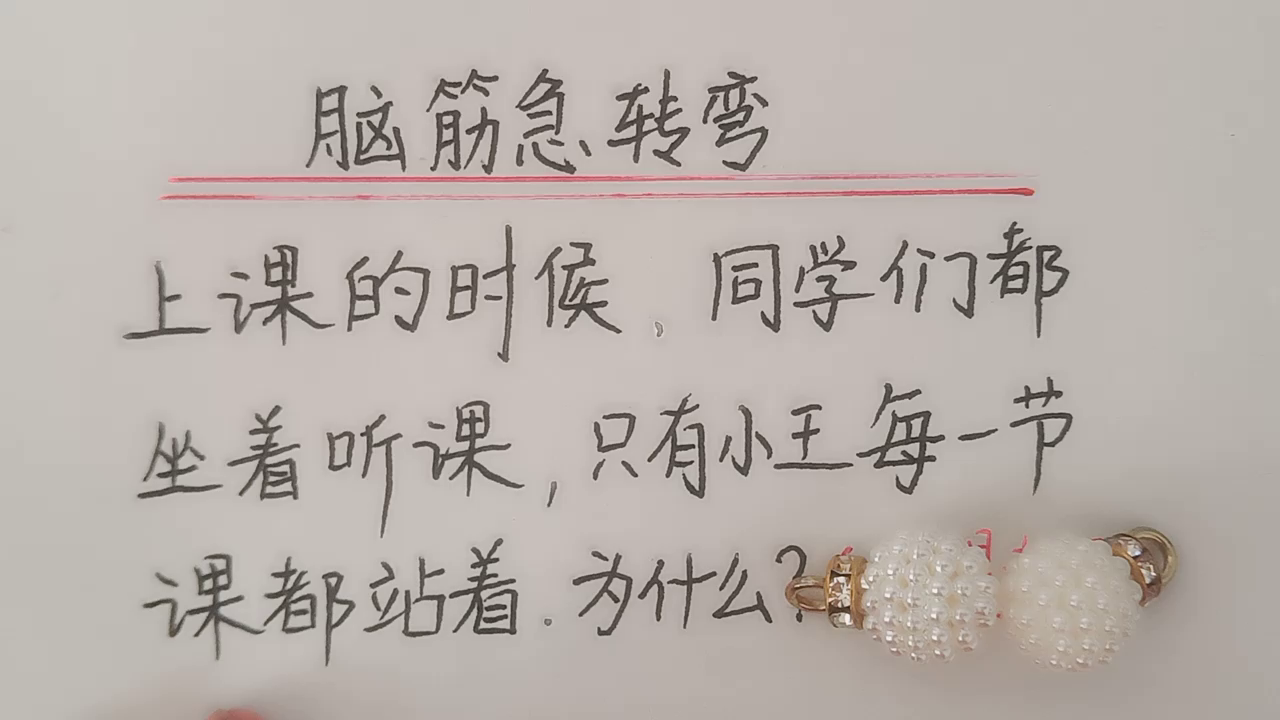 脑筋急转弯
上课的时候、同学们都
坐着听课,只有小王每一节
课都站着.为什么?